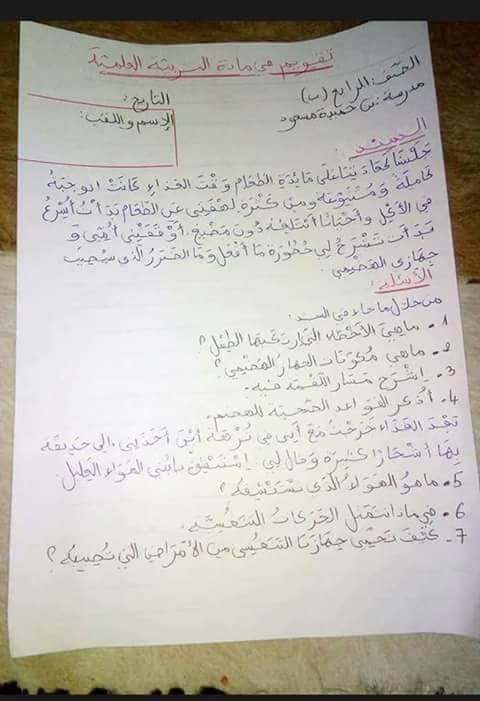 تقويم في مادة التربية العلمية
الصنف: الرابع (ب)
مدرسة بن حميدة مسعود
التاريخ:
الإسم واللقب:
السند:
جلسنا كعادتنا على مائدة الطعام وقت الغداء كانت الوجبة
كاملة و متنوعة ومن كثرة لهفتي عن الطعام بدأت أسرع
في الأكل وأحيانا أبتلعه دون مضغ، أوقفتني أمي و
بدأت تشرح لي خطورة ما أفعل وما الضرر الذي سيصيب
جهازي الهضمي.
الأسئلة:
من خلال ما جاء في السند:
1- ماهي الأخطاء التي ارتكبها الطفل؟
2- ماهي مكونات الجهاز الهضمي؟
3- إشرح مسار اللقمة فيه.
4- أذكر القواعد الصحية للهضم.
بعد الغداء خرجت مع أبي في نزهة أين أخذني إلى حديقة
بها أشجار كثيرة وقال لي: إستنشق يا بني الهواء العليل
5- ماهو الهواء الذي نستنشقه؟
6- في ماذا تتمثل الحركات التنفسية.
7- كيف نحمي جهازنا التنفسي من الأمراض التي تصيبه؟